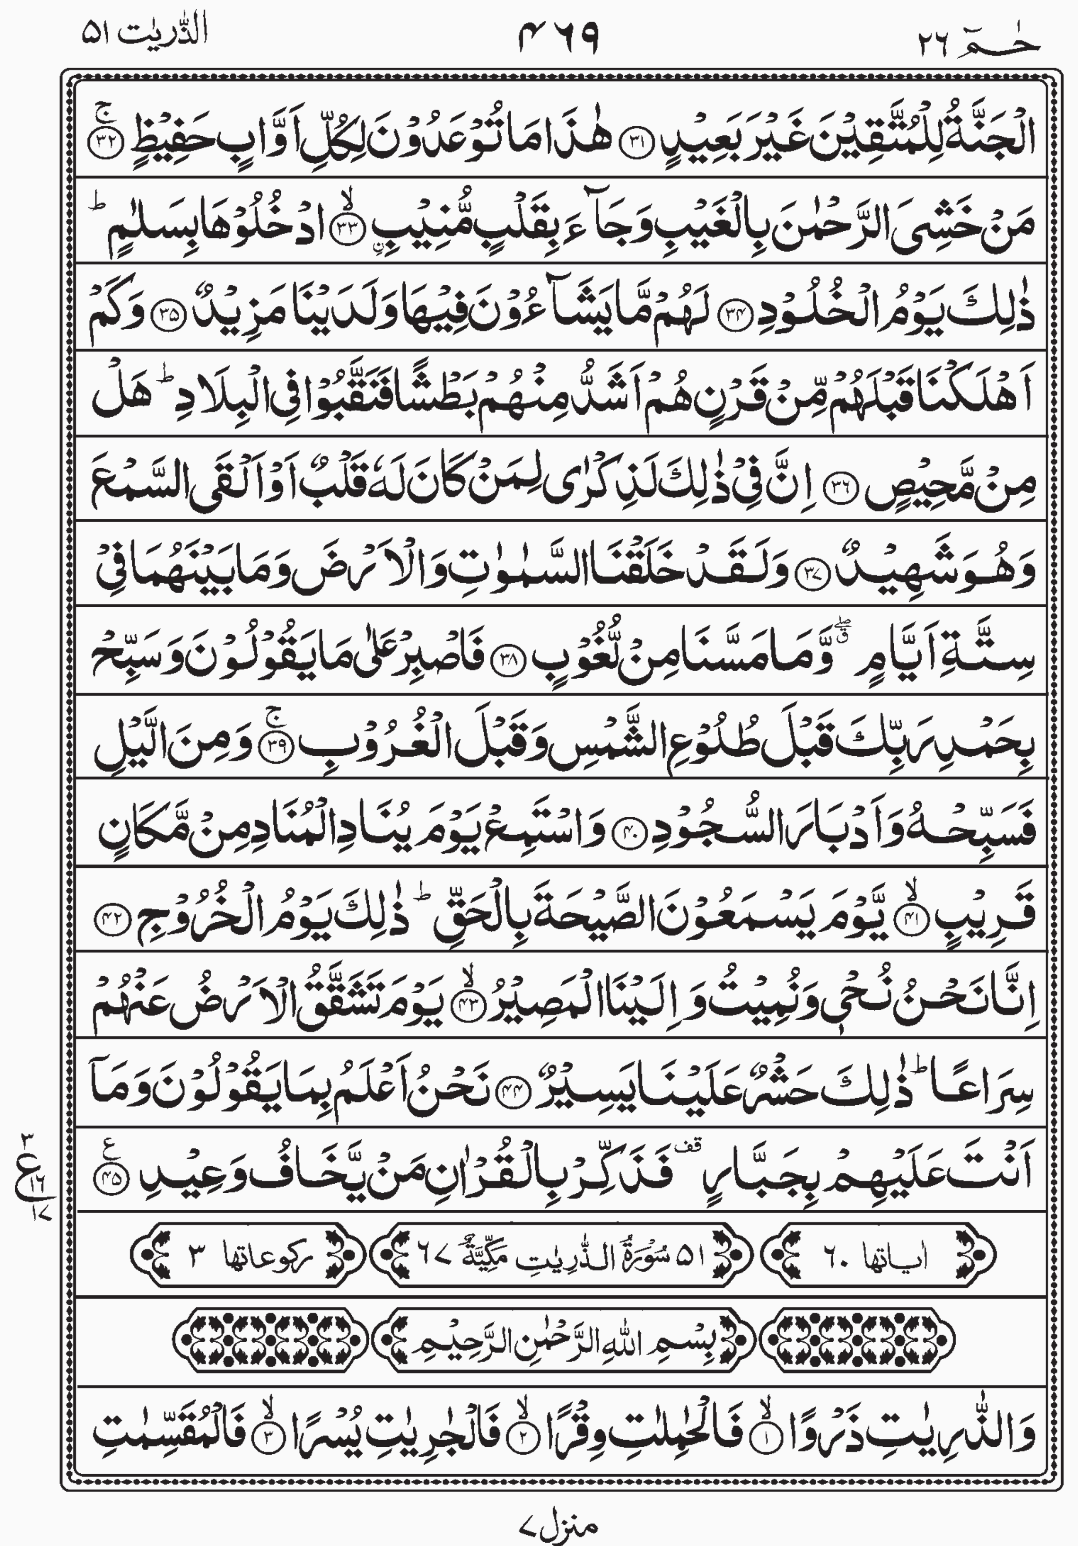 حٰمٓ ٢٦ ۴٦٩ الذّٰریٰت ۵١
الْجَنَّةُ لِلْمُتَّقِیْنَ غَیْرَ بَعِیْدٍ ﴿٣١﴾ هٰذَا مَا تُوْعَدُوْنَ لِكُلِّ اَوَّابٍ حَفِیْظٍ ۚ﴿٣٢﴾
مَنْ خَشِیَ الرَّحْمٰنَ بِالْغَیْبِ وَجَآءَ بِقَلْبٍ مُّنِیْبِ ۙ﴿٣٣﴾ اۨدْخُلُوْهَا بِسَلٰمٍ ؕ
ذٰلِكَ یَوْمُ الْخُلُوْدِ ﴿٣۴﴾ لَهُمْ مَّا یَشَآءُوْنَ فِیْهَا وَلَدَیْنَا مَزِیْدٌ ﴿٣۵﴾ وَكَمْ
اَهْلَكْنَا قَبْلَهُمْ مِّنْ قَرْنٍ هُمْ اَشَدُّ مِنْهُمْ بَطْشًا فَنَقَّبُوْا فِی الْبِلَادِ ؕ هَلْ
مِنْ مَّحِیْصٍ ﴿٣٦﴾ اِنَّ فِیْ ذٰلِكَ لَذِكْرٰی لِمَنْ كَانَ لَهٗ قَلْبٌ اَوْ اَلْقَی السَّمْعَ
وَهُوَ شَهِیْدٌ ﴿٣٧﴾ وَلَقَدْ خَلَقْنَا السَّمٰوٰتِ وَالْاَرْضَ وَمَا بَیْنَهُمَا فِیْ
سِتَّةِ اَیَّامٍ ۖۗ وَّمَا مَسَّنَا مِنْ لُّغُوْبٍ ﴿٣٨﴾ فَاصْبِرْ عَلٰی مَا یَقُوْلُوْنَ وَسَبِّحْ
بِحَمْدِ رَبِّكَ قَبْلَ طُلُوْعِ الشَّمْسِ وَقَبْلَ الْغُرُوْبِ ۚ﴿٣٩﴾ وَمِنَ الَّیْلِ
فَسَبِّحْهُ وَاَدْبَارَ السُّجُوْدِ ﴿۴٠﴾ وَاسْتَمِعْ یَوْمَ یُنَادِ الْمُنَادِ مِنْ مَّكَانٍ
قَرِیْبٍ ۙ﴿۴١﴾ یَّوْمَ یَسْمَعُوْنَ الصَّیْحَةَ بِالْحَقِّ ؕ ذٰلِكَ یَوْمُ الْخُرُوْجِ ﴿۴٢﴾
اِنَّا نَحْنُ نُحْیٖ وَنُمِیْتُ وَاِلَیْنَا الْمَصِیْرُ ۙ﴿۴٣﴾ یَوْمَ تَشَقَّقُ الْاَرْضُ عَنْهُمْ
سِرَاعًا ؕ ذٰلِكَ حَشْرٌ عَلَیْنَا یَسِیْرٌ ﴿۴۴﴾ نَحْنُ اَعْلَمُ بِمَا یَقُوْلُوْنَ وَمَآ
اَنْتَ عَلَیْهِمْ بِجَبَّارٍ قف فَذَكِّرْ بِالْقُرْاٰنِ مَنْ یَّخَافُ وَعِیْدِ ﴿۴۵﴾ ع
٣ ع ١٦ ١٧
اٰیاتها ٦٠ ۵١ سُوْرَةُ الذّٰرِیٰتِ مَكِّیَّةٌ ٦٧ ركوعاتها ٣
بِسْمِ اللّٰهِ الرَّحْمٰنِ الرَّحِیْمِ
وَالذّٰرِیٰتِ ذَرْوًا ۙ﴿١﴾ فَالْحٰمِلٰتِ وِقْرًا ۙ﴿٢﴾ فَالْجٰرِیٰتِ یُسْرًا ۙ﴿٣﴾ فَالْمُقَسِّمٰتِ
منزل ٧